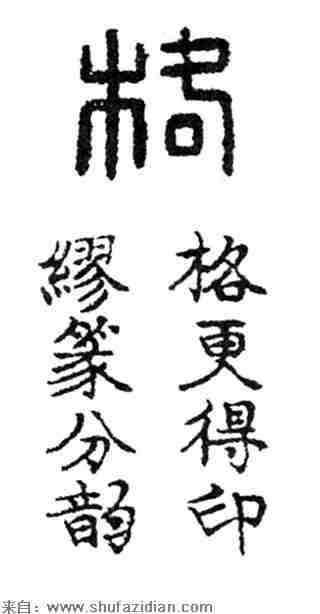 格
格更得印
繆篆分韵
来自：www.shufazidian.com